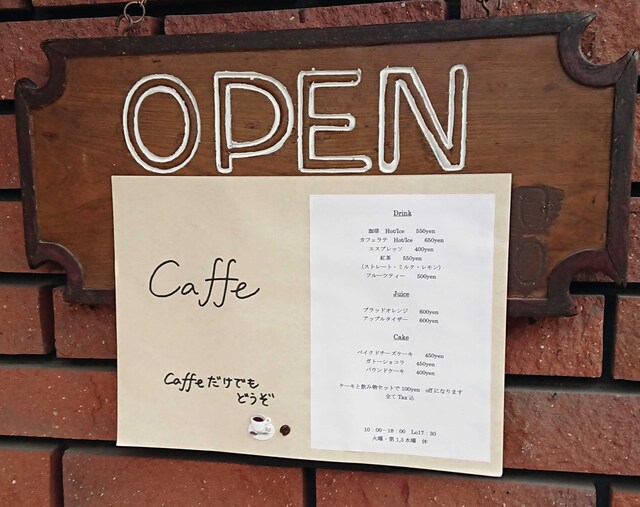 OPEN
Caffe
Caffeだけでも
どうぞ
Drink
珈琲 Hot/Ice 550yen
カフェラテ Hot/Ice 650yen
エスプレッソ 400yen
紅茶 550yen
(ストレート・ミルク・レモン)
フルーツティー 500yen
Juice
ブラッドオレンジ 600yen
アップルタイザー 600yen
Cake
ベイクドチーズケーキ 450yen
ガトーショコラ 450yen
パウンドケーキ 400yen
ケーキと飲み物セットで100yen offになります
全てTax込
10:00-18:00 Lo17:30
火曜・第1,3水曜 休